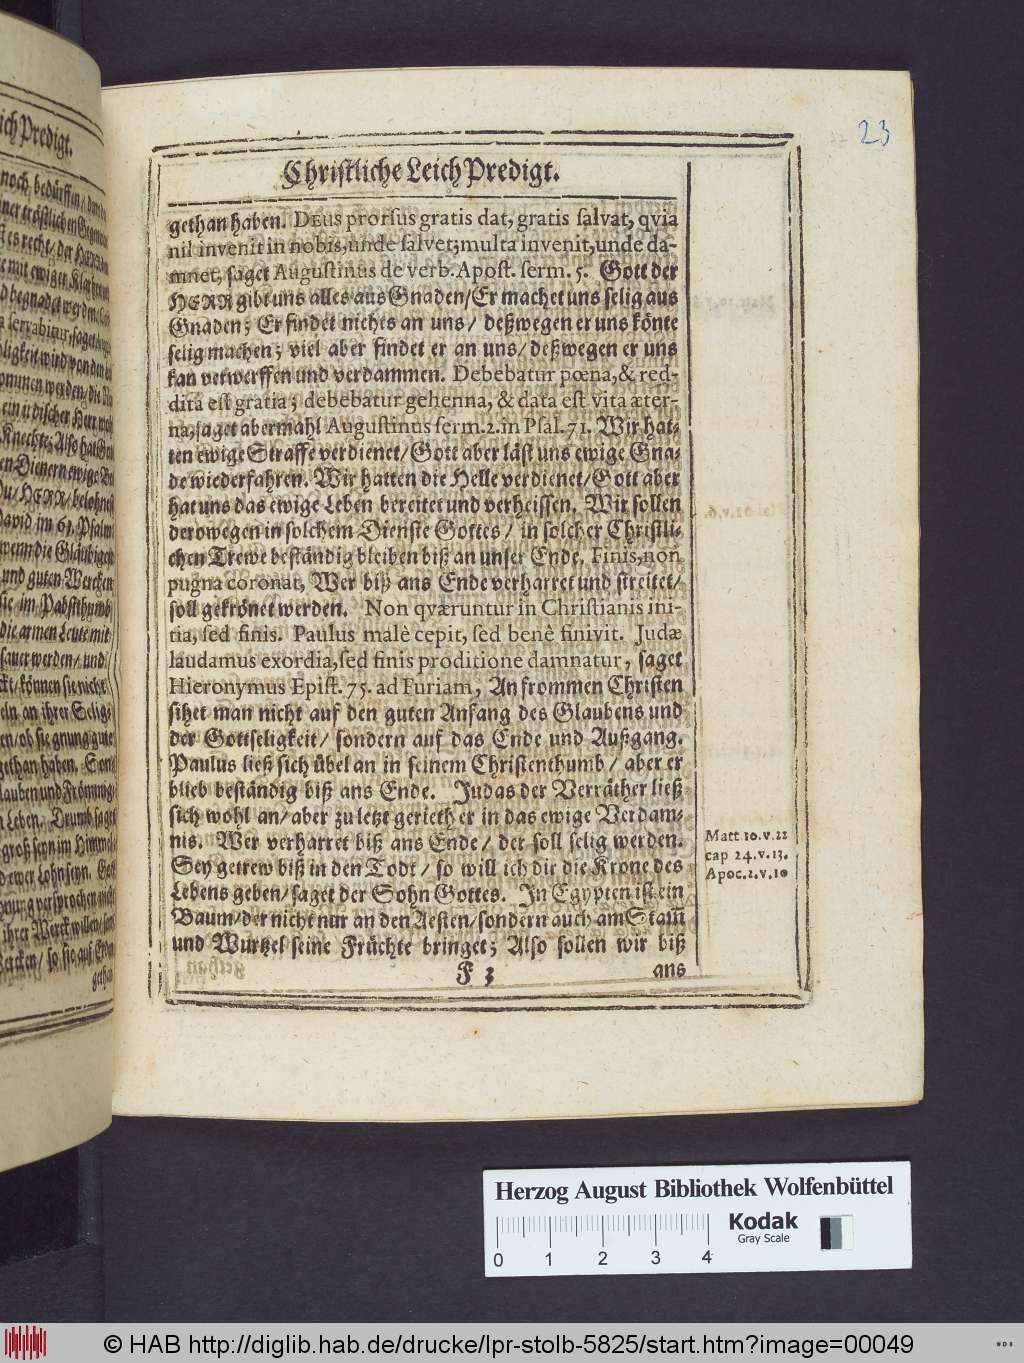 23
Christliche LeichPredigt.
gethan haben. DEus prorsus gratis dat, gratis salvat, qvia
nil invenit in nobis, unde salvet; multa invenit, unde da-
mnet, saget Augustinus de verb. Apost. serm. 5. Gott der
HERR gibt uns alles aus Gnaden/ Er machet uns selig aus
Gnaden; Er findet nichts an uns/ deßwegen er uns könte
selig machen; viel aber findet er an uns/ deßwegen er uns
kan verwerffen und verdammen. Debebatur pœna, & red-
dita est gratia; debebatur gehenna, & data est vita æter-
na, saget abermahl Augustinus serm. 2. in Psal. 71. Wir hat-
ten ewige Straffe verdienet/ Gott aber läst uns ewige Gna-
de wiederfahren. Wir hatten die Helle verdienet/ Gott aber
hat uns das ewige Leben bereitet und verheissen. Wir sollen
derowegen in solchem Dienste Gottes/ in solcher Christli-
chen Trewe beständig bleiben biß an unser Ende. Finis, non
pugna coronat, Wer biß ans Ende verharret und streitet/
soll gekrönet werden. Non qværuntur in Christianis ini-
tia, sed finis. Paulus malè cepit, sed benè finivit. Judæ
laudamus exordia, sed finis proditione damnatur, saget
Hieronymus Epist. 75. ad Furiam, An frommen Christen
sihet man nicht auf den guten Anfang des Glaubens und
der Gottseligkeit/ sondern auf das Ende und Außgang.
Paulus ließ sich übel an in seinem Christenthumb/ aber er
blieb beständig biß ans Ende. Judas der Verräther ließ
sich wohl an/ aber zu letzt gerieth er in das ewige Verdam-
nis. Wer verharret biß ans Ende/ der soll selig werden.
Sey getrew biß in den Todt/ so will ich dir die Krone des
Lebens geben/ saget der Sohn Gottes. In Egypten ist ein
Baum/ der nicht nur an den Aesten/ sondern auch am Stam̃
und Wurtzel seine Früchte bringet; Also sollen wir biß
F 3 ans
Matt 10. v. 22
cap 24. v. 13.
Apoc. 2. v. 10
Herzog August Bibliothek Wolfenbüttel
Kodak
Gray Scale
0 1 2 3 4
© HAB http://diglib.hab.de/drucke/lpr-stolb-5825/start.htm?image=00049